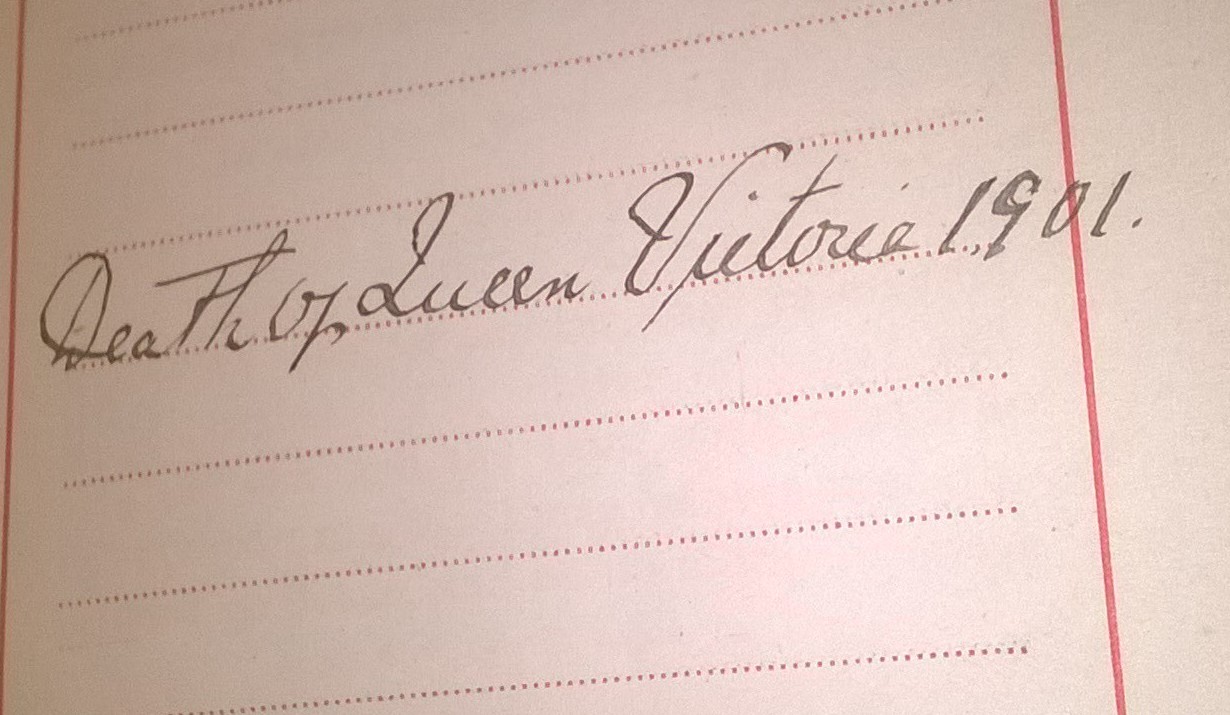 Death of Queen Victoria 1901.